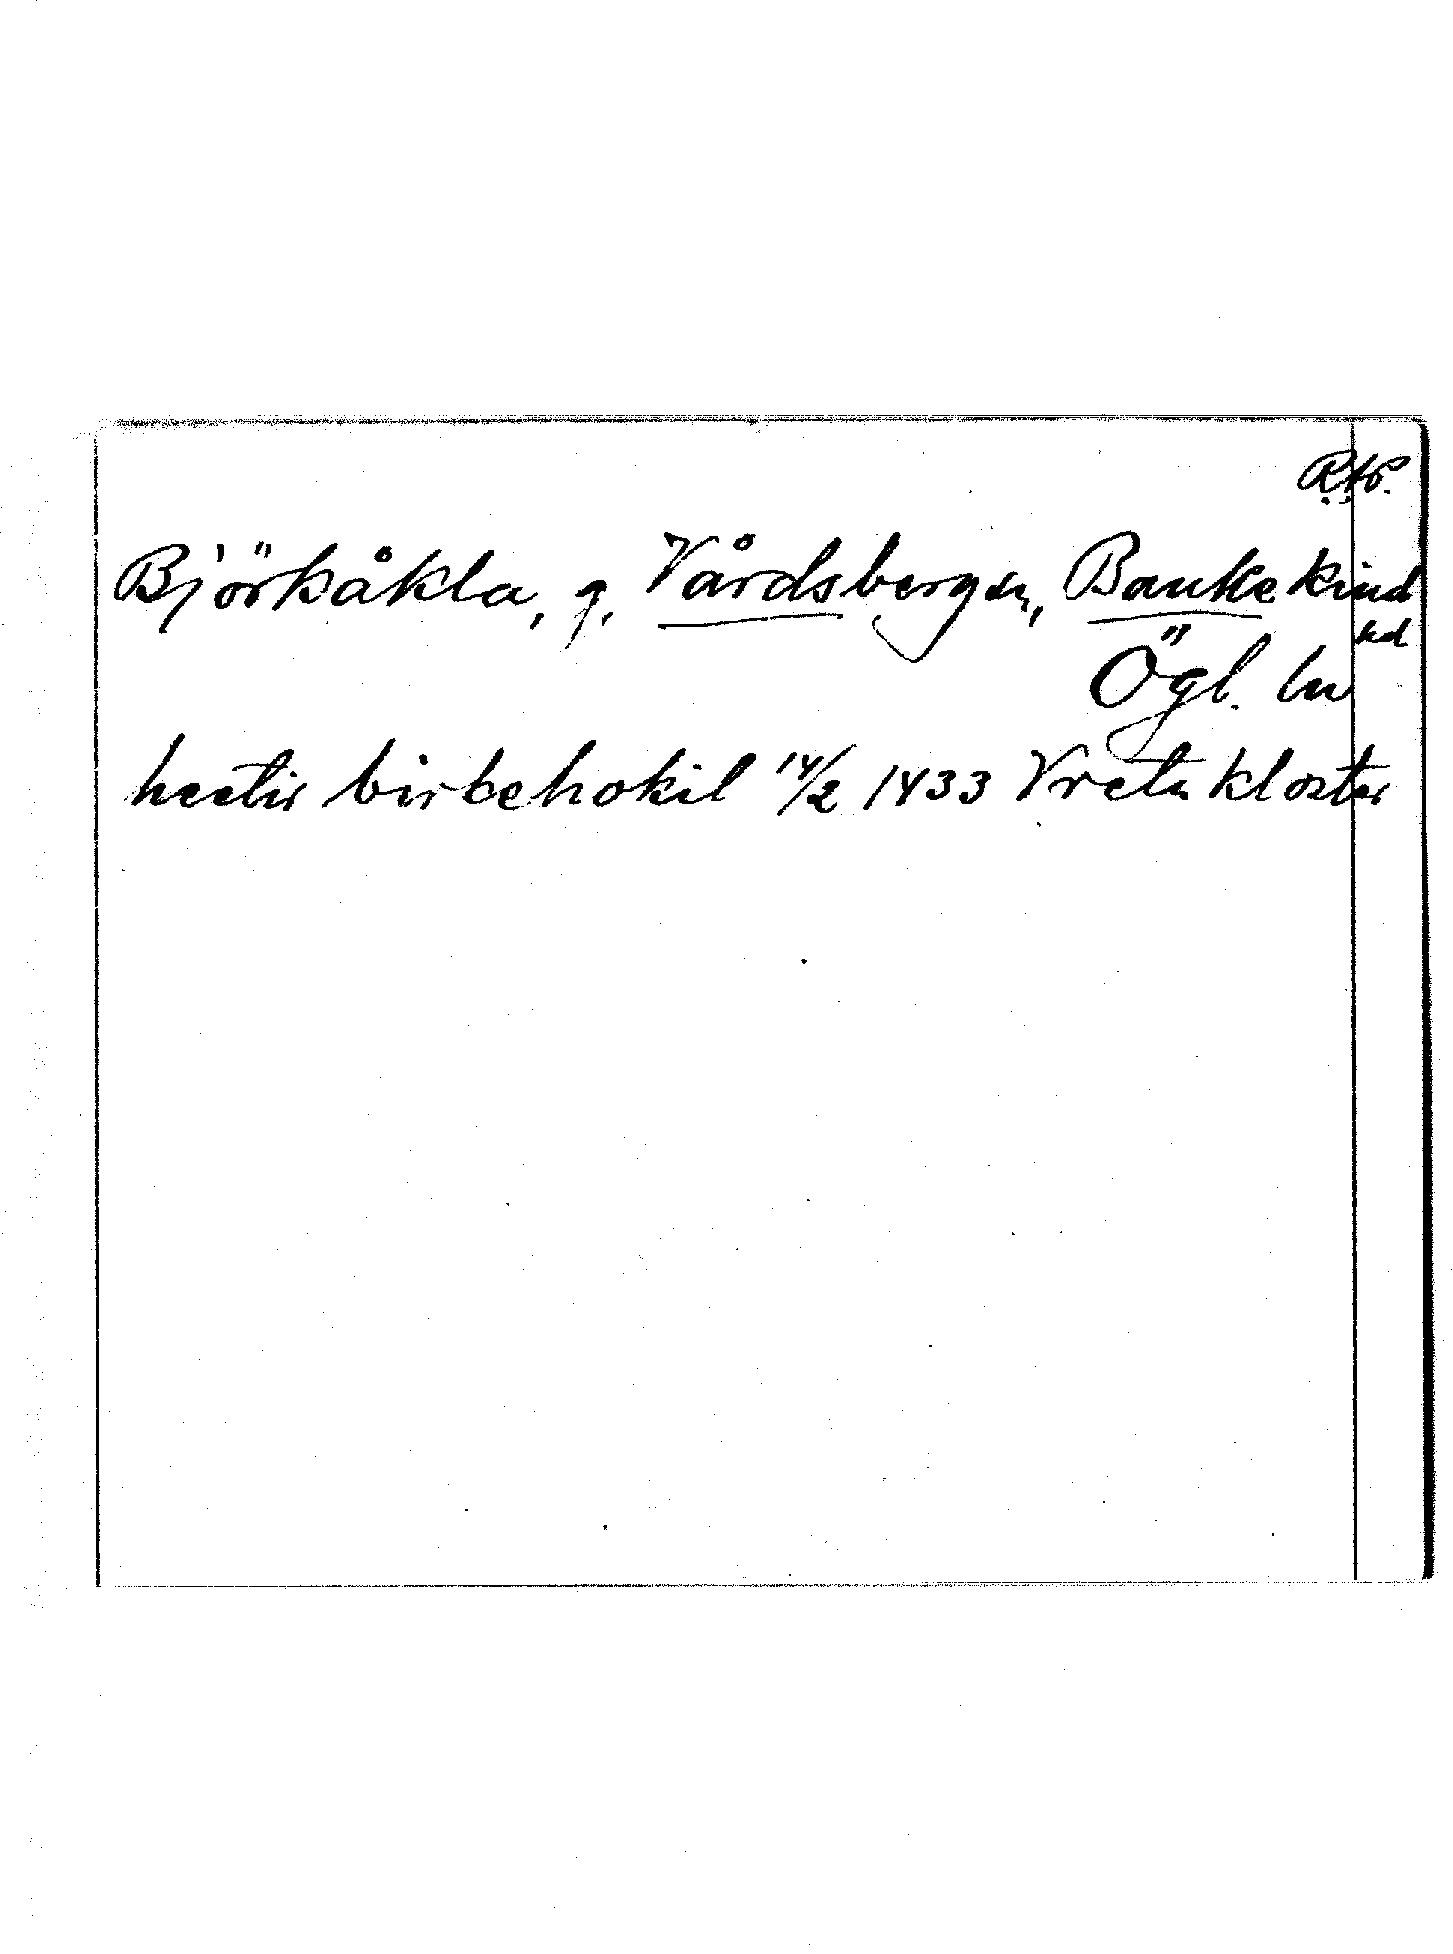 RAP.
Björkåkla, g, Vårdsbergen, Bankekind
hd
Ögl. ln
heetir birkehokil 14/2 1433 Vreta kloster